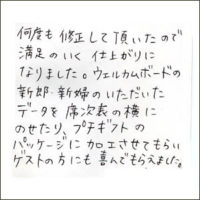 何度も修正して頂いたので
満足のいく仕上がりに
なりました。ウェルカムボードの
新郎・新婦のいただいた
データを席次表の横に
のせたり、プチギフトの
パッケージに加工させてもらい
ゲストの方にも喜んでもらえました。